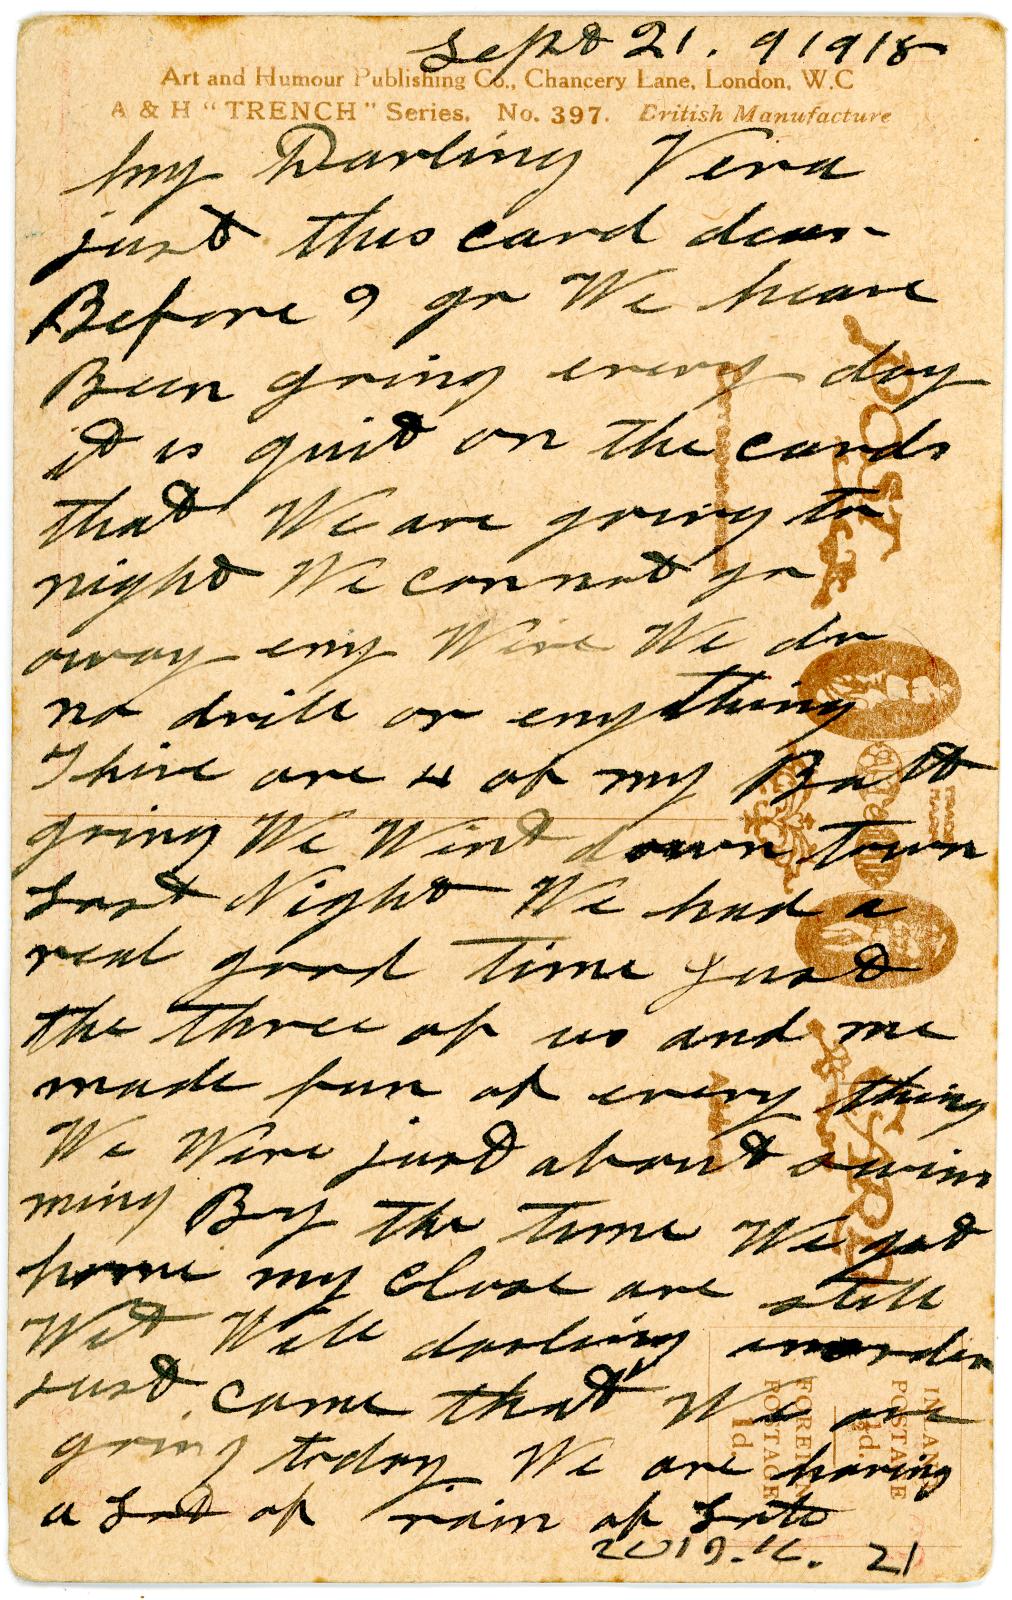 Sept 21. 91918
Art and Humour Publishing Co., Chancery Lane, London, W.C
A & H "TRENCH" Series. No. 397. British Manufacture
My Darling Vera
just this card dear
Before I go We heave
Been going every day
it is quit on the cards
that We are going to
night We connot go
away eny Wire We do
no drill or enything
Thire are 4 of my Batt
going We Wint down town
Last Night We had a
real good time Just
the three of us and me
made fun of every thing
We Were just about swim
ming By the time We got
home my close are still
Wet Will darling order
just came that We are
going today We are having
a Lot of rain of Late
2019.16. 21
POST CARD
INLAND
POSTAGE
½d.
FOREIGN
POSTAGE
1d.